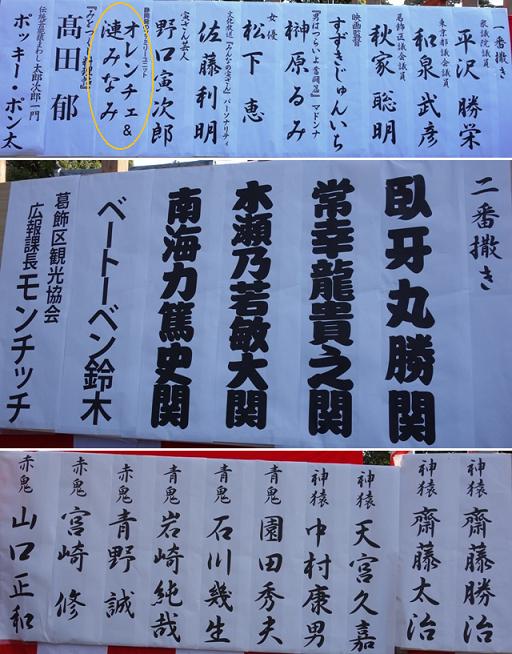 一番撒き
衆議院議員
平沢勝栄
東京都議会議員
和泉武彦
葛飾区議会議員
秋家聡明
映画監督
すずきじゅんいち
『男はつらいよ 奮闘篇』マドンナ
榊原るみ
女優
松下恵
文化放送『みんなの寅さん』パーソナリティ
佐藤利明
寅さん芸人
野口寅次郎
オレンチェ&
漣みなみ
『みをつくし料理帖』
髙田郁
伝統芸能猿まわし 太郎次郎一門
ポッキー・ポン太
二番撒き
臥牙丸勝関
常幸龍貴之関
木瀬乃若敏大関
南海力篤史関
ベートーベン鈴木
葛飾区観光協会
広報課長モンチッチ
神猿 齋藤勝治
神猿 齋藤太治
神猿 天宮久嘉
神猿 中村康男
青鬼 園田秀夫
青鬼 石川幾生
青鬼 岩崎純哉
赤鬼 青野誠
赤鬼 宮崎修
赤鬼 山口正和